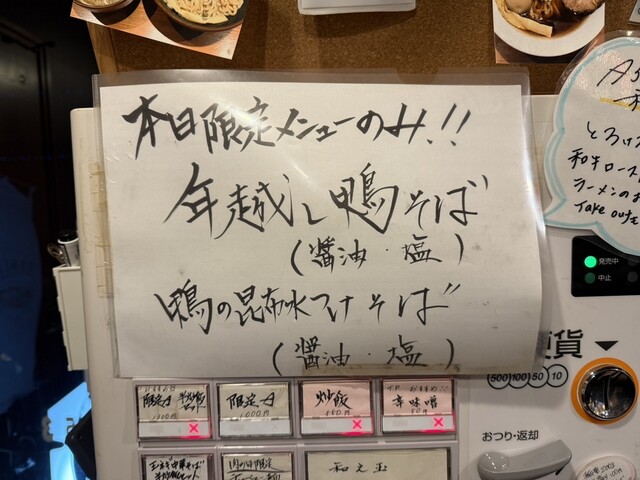 本日限定メニューのみ!!
年越し鴨そば
(醤油・塩)
鴨の昆布水つけそば
(醤油・塩)
とろけ
和牛ロース
ラーメンのお
Take outを
発売中
中止
硬貨
500 100 50 10
おつり・返却
限定A
1000円
炒飯
辛味噌
和え玉
肉の日限定